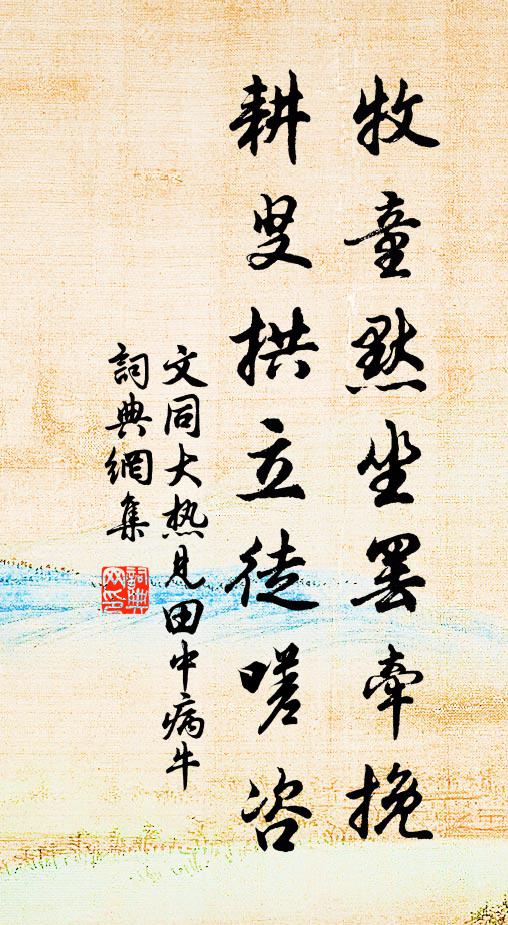 牧童默坐罢牵挽
耕叟拱立徒嗟咨
文同大热见田中病牛
詞典網集